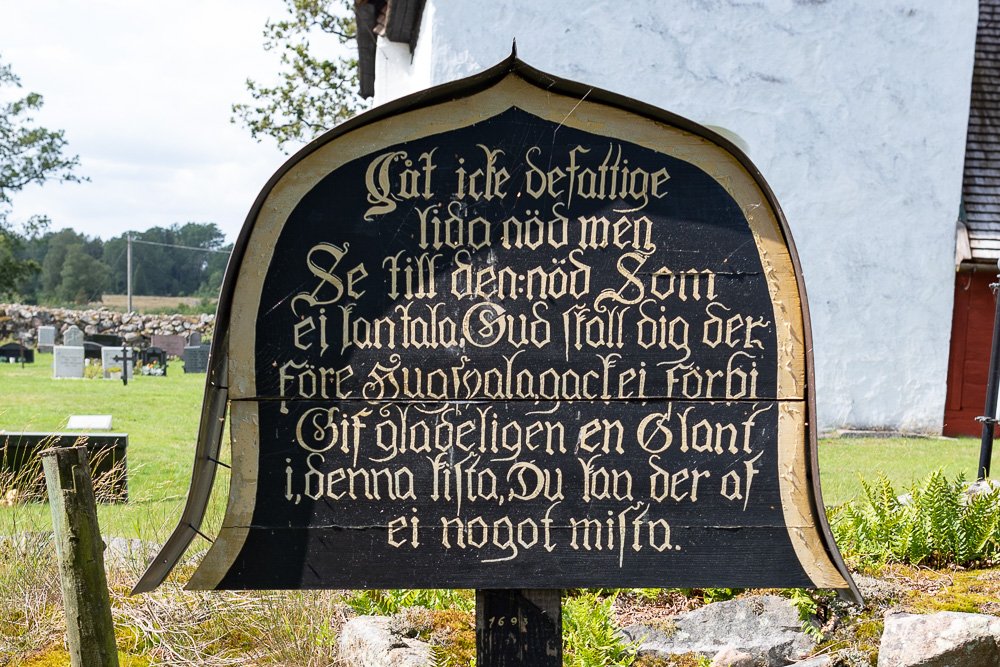 Låt icke defattige
lida nöd men
Se till den:nöd Som
ei kan tala. Gud skall dig der
före Hugswala, gack ei förbi
Gif gladeligen en Slant
i, denna kista, Du kan der af
ei nogot mista.
1693